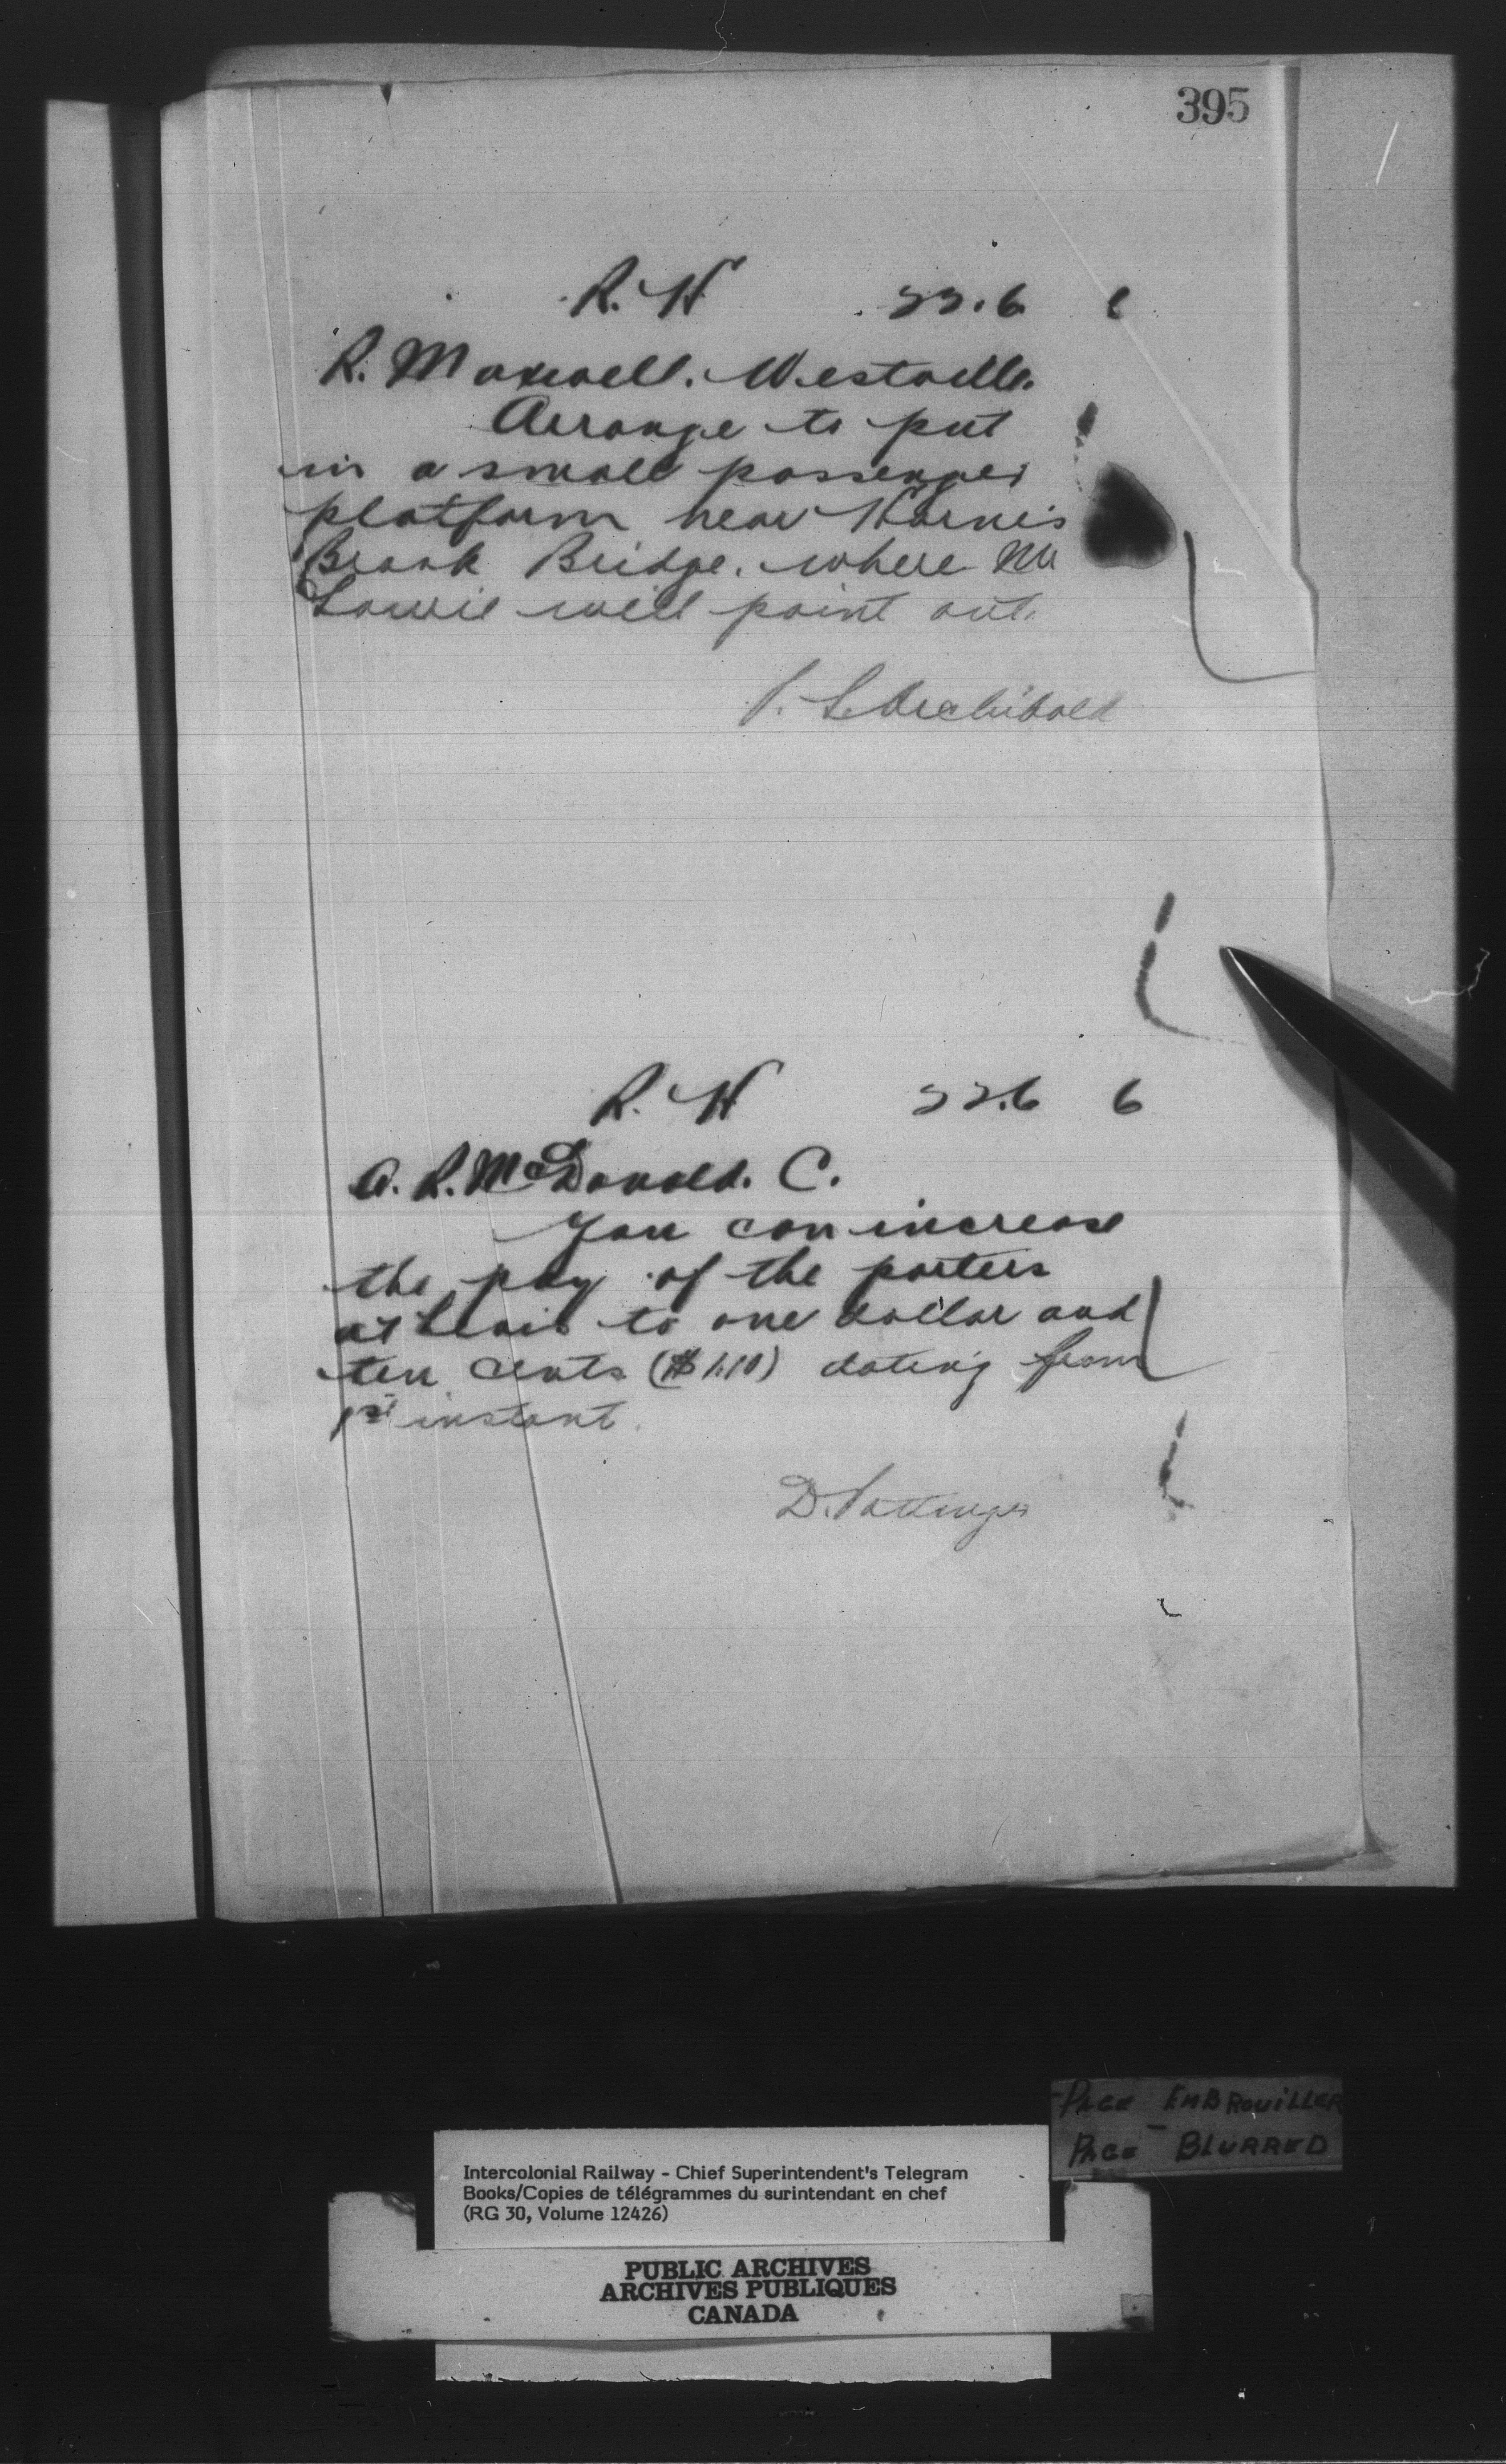 395
R. H 22.6 6
R. Maxwell. Westville.
Arrange to put
in a small passenger
platform near
Brook Bridge. where Mr
Lowrie will point out.
P. S. Archibald
R. H 22.6 6
A. R. McDonald. C.
You can increase
the pay of the porters
at Levis to one dollar and
ten cents ($1.10) dating from
1st instant.
D. Pottinger
PAGE EMBROUILLER
PAGE BLURRED
Intercolonial Railway - Chief Superintendent's Telegram
Books/Copies de télégrammes du surintendant en chef
(RG 30, Volume 12426)
PUBLIC ARCHIVES
ARCHIVES PUBLIQUES
CANADA